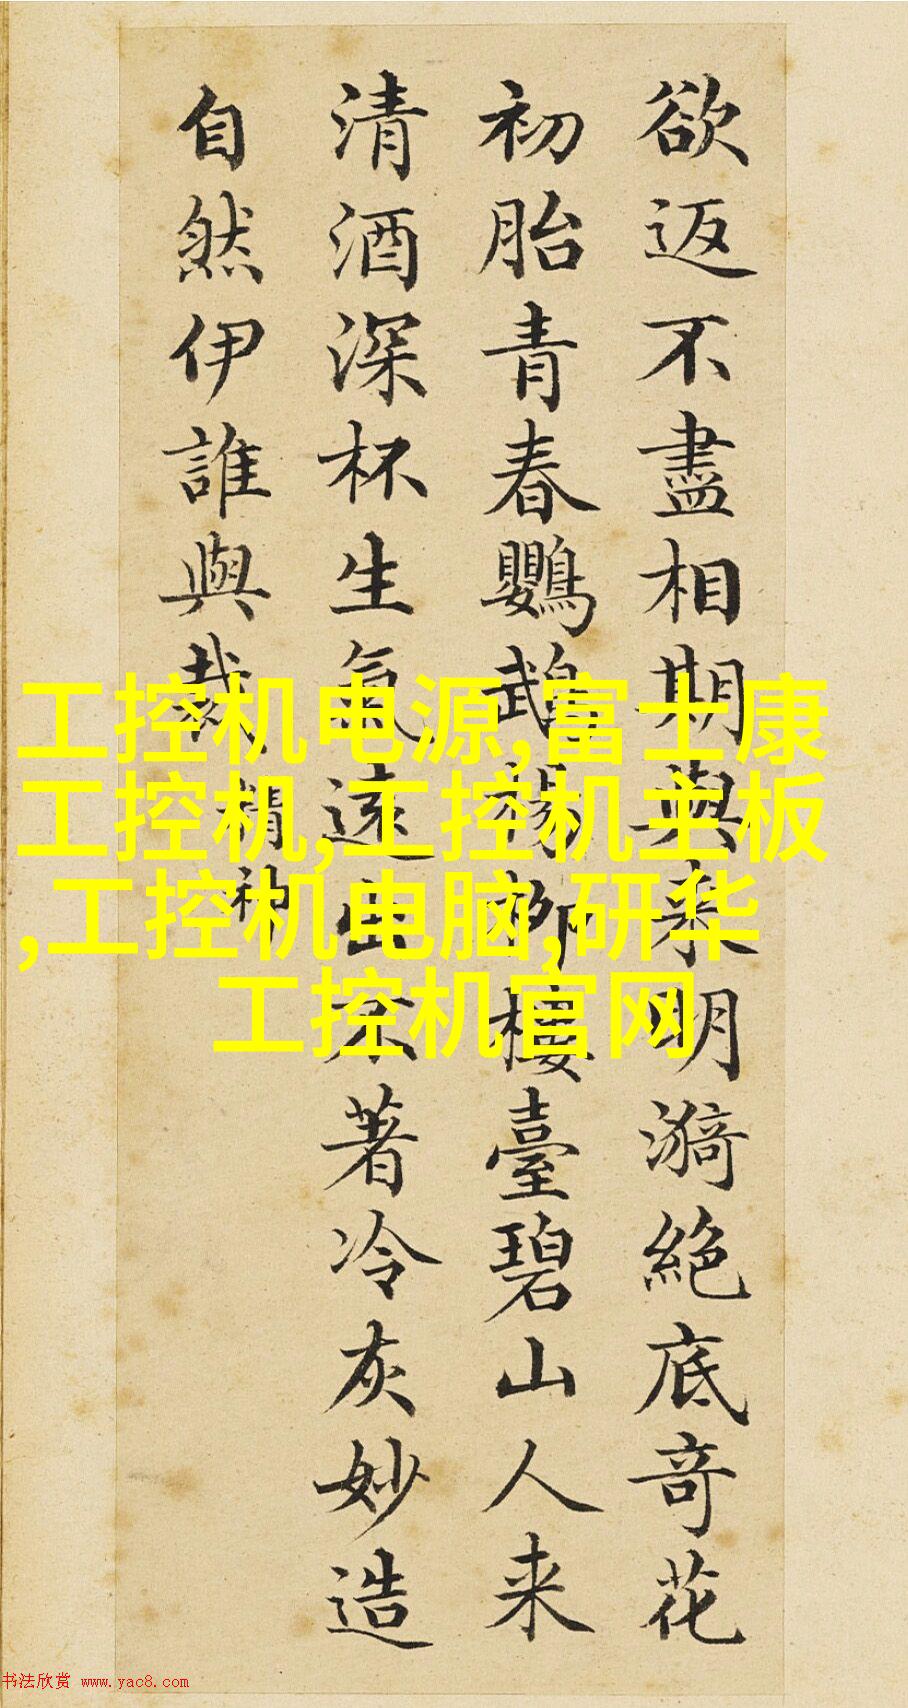 欲返不盡相期與来明漪絶底竒花
初胎青春鸚鵡楊柳樓臺碧山人来
清酒深杯生氣遠出不著冷灰妙造
自然伊誰與裁
精神
工控机电源,富士康
工控机,工控机主板
,工控机电脑,研华
工控机官网
书法欣赏 www.yac8.com